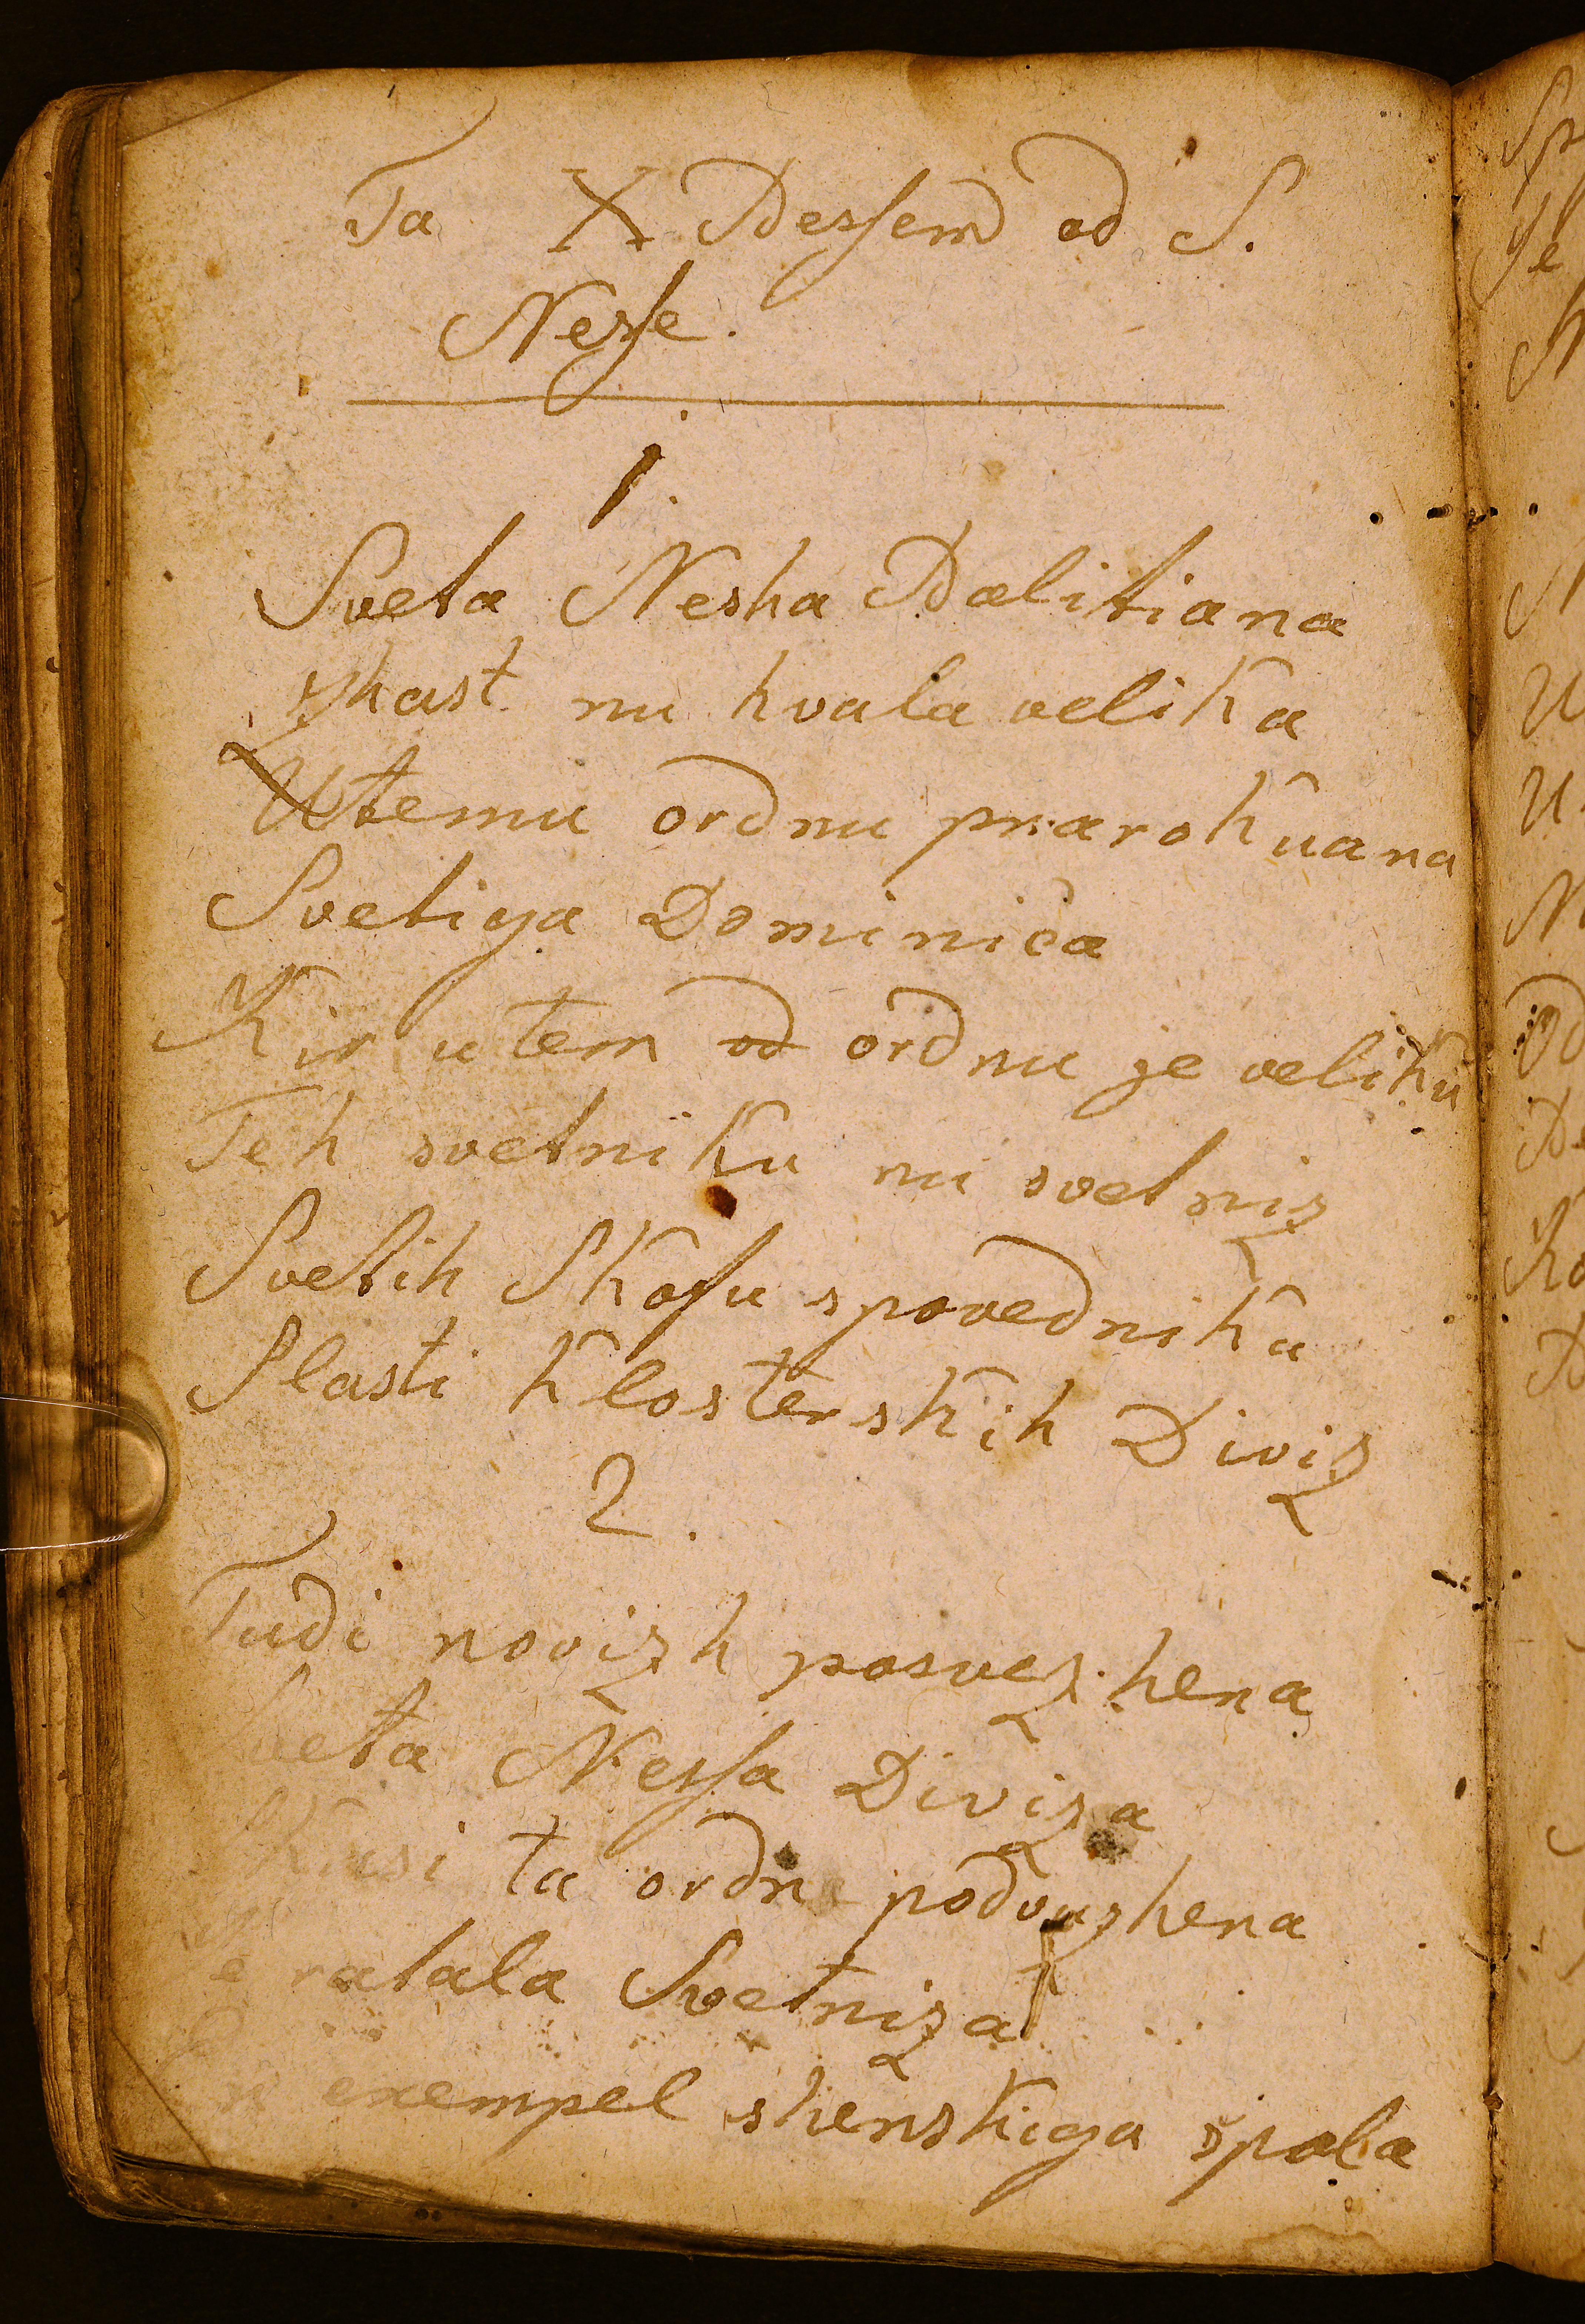 Ta X Pessem od S.
Nesse.
1.
Sveta Nesha Palitiana
zhast nu hvala velika
Utemu ordnu prarokuana
Svetiga Dominica
Kir u tem od ordnu je veliku
Teh svetniku nu svetniz
Svetih Skofu spovedniku
Slasti Klosterskih Diviz
2.
Tudi novizh posvezhena
Sveta Nessa Diviza
ta ordn podvuzhena
Je ratala Svetniza
exempel shenskiga spola